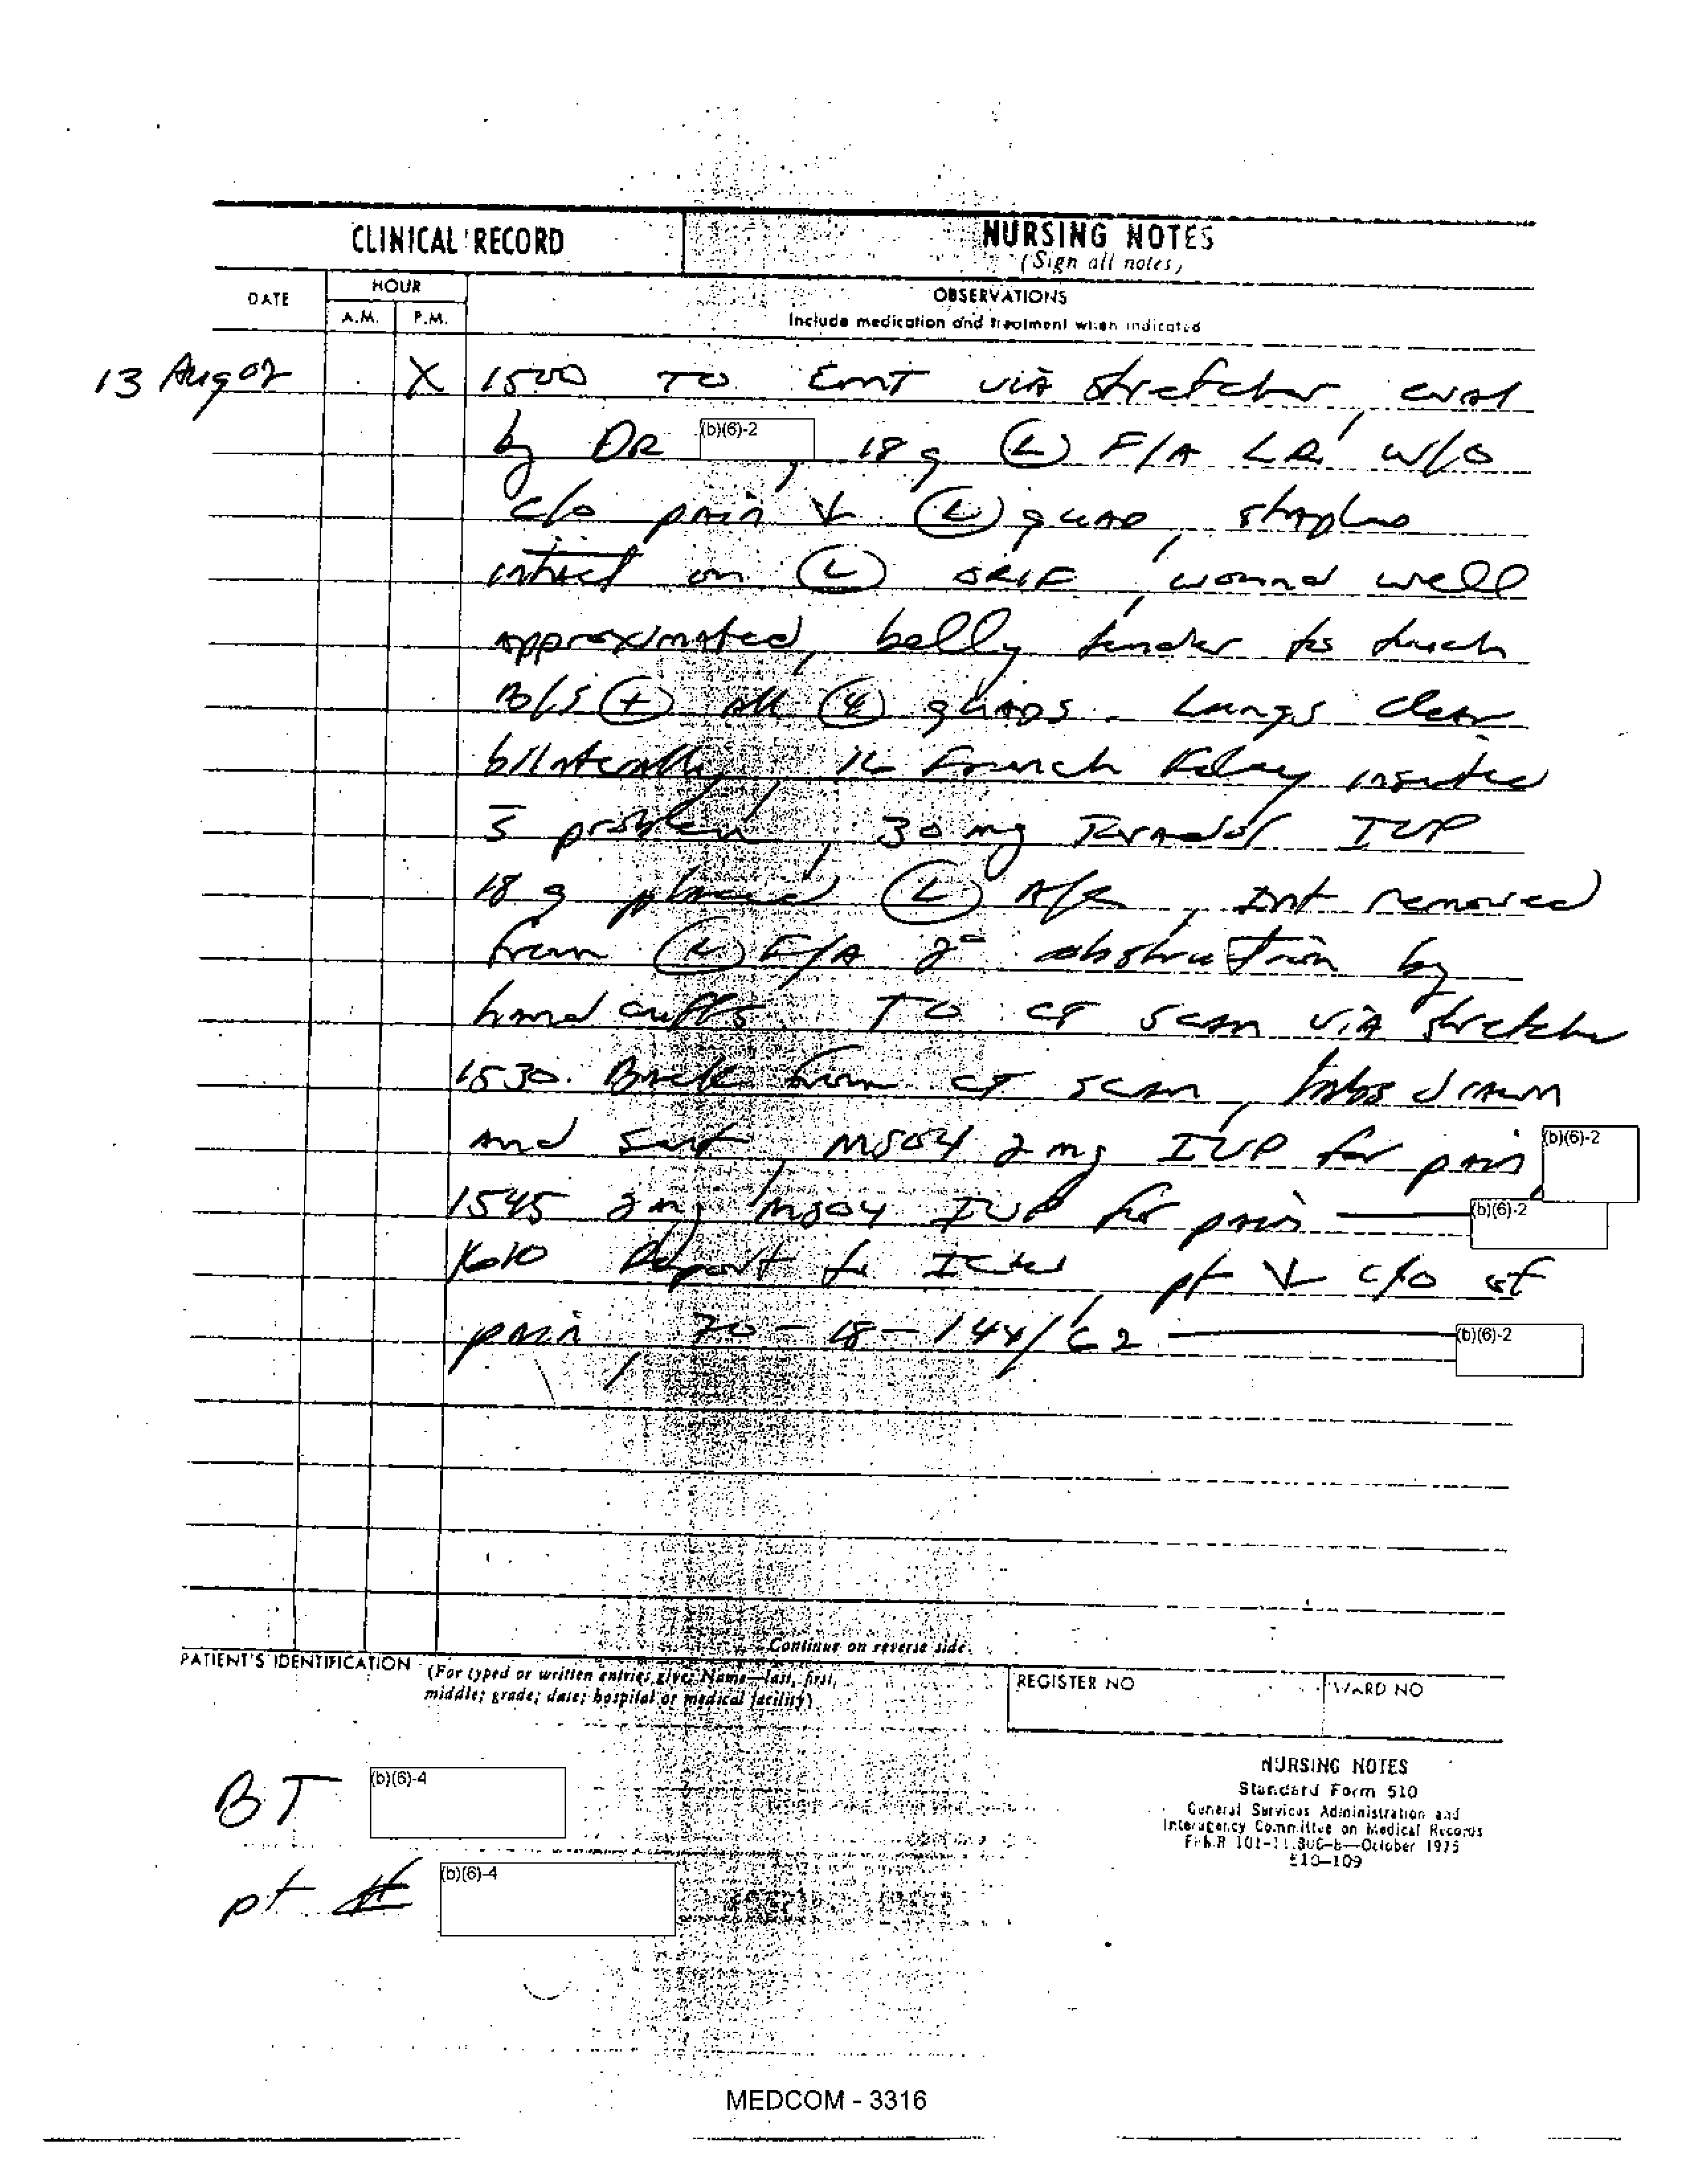 CLINICAL RECORD
NURSING NOTES
(Sign all notes)
DATE
HOUR
A.M. P.M.
OBSERVATIONS
Include medication and treatment when indicated
13 Aug X 1500 TO EMT via stretcher, eval
by DR (b)(6)-2, 18 g (L) F/A LR w/o
c/o pain ↓ (L) quad, staples
intact on (L) ORIF, wound well
approximated, belly tender to touch
B/S (+) all (4) quads. Lungs clear
bilaterally, 16 French Foley inserted
s̄ problem, 30 mg Toradol IVP
18 g placed (L) A/C, Int removed
from F/A 2° obstruction by
hand cuffs. TO CT scan via stretcher
1530. Back from CT scan, labs drawn
and sent, MSO4 2 mg IVP for pain (b)(6)-2
1545 2 mg MSO4 IVP for pain (b)(6)-2
1610 Report to pt ↓ c/o of
pain, 70-18-144/62 (b)(6)-2
Continue on reverse side
PATIENT'S IDENTIFICATION (For typed or written entries give: Name—last, first,
middle; grade; date; hospital or medical facility)
REGISTER NO
WARD NO
BT (b)(6)-4
pt # (b)(6)-4
NURSING NOTES
Standard Form 510
General Services Administration and
Interagency Committee on Medical Records
October 1975
510-109
MEDCOM - 3316